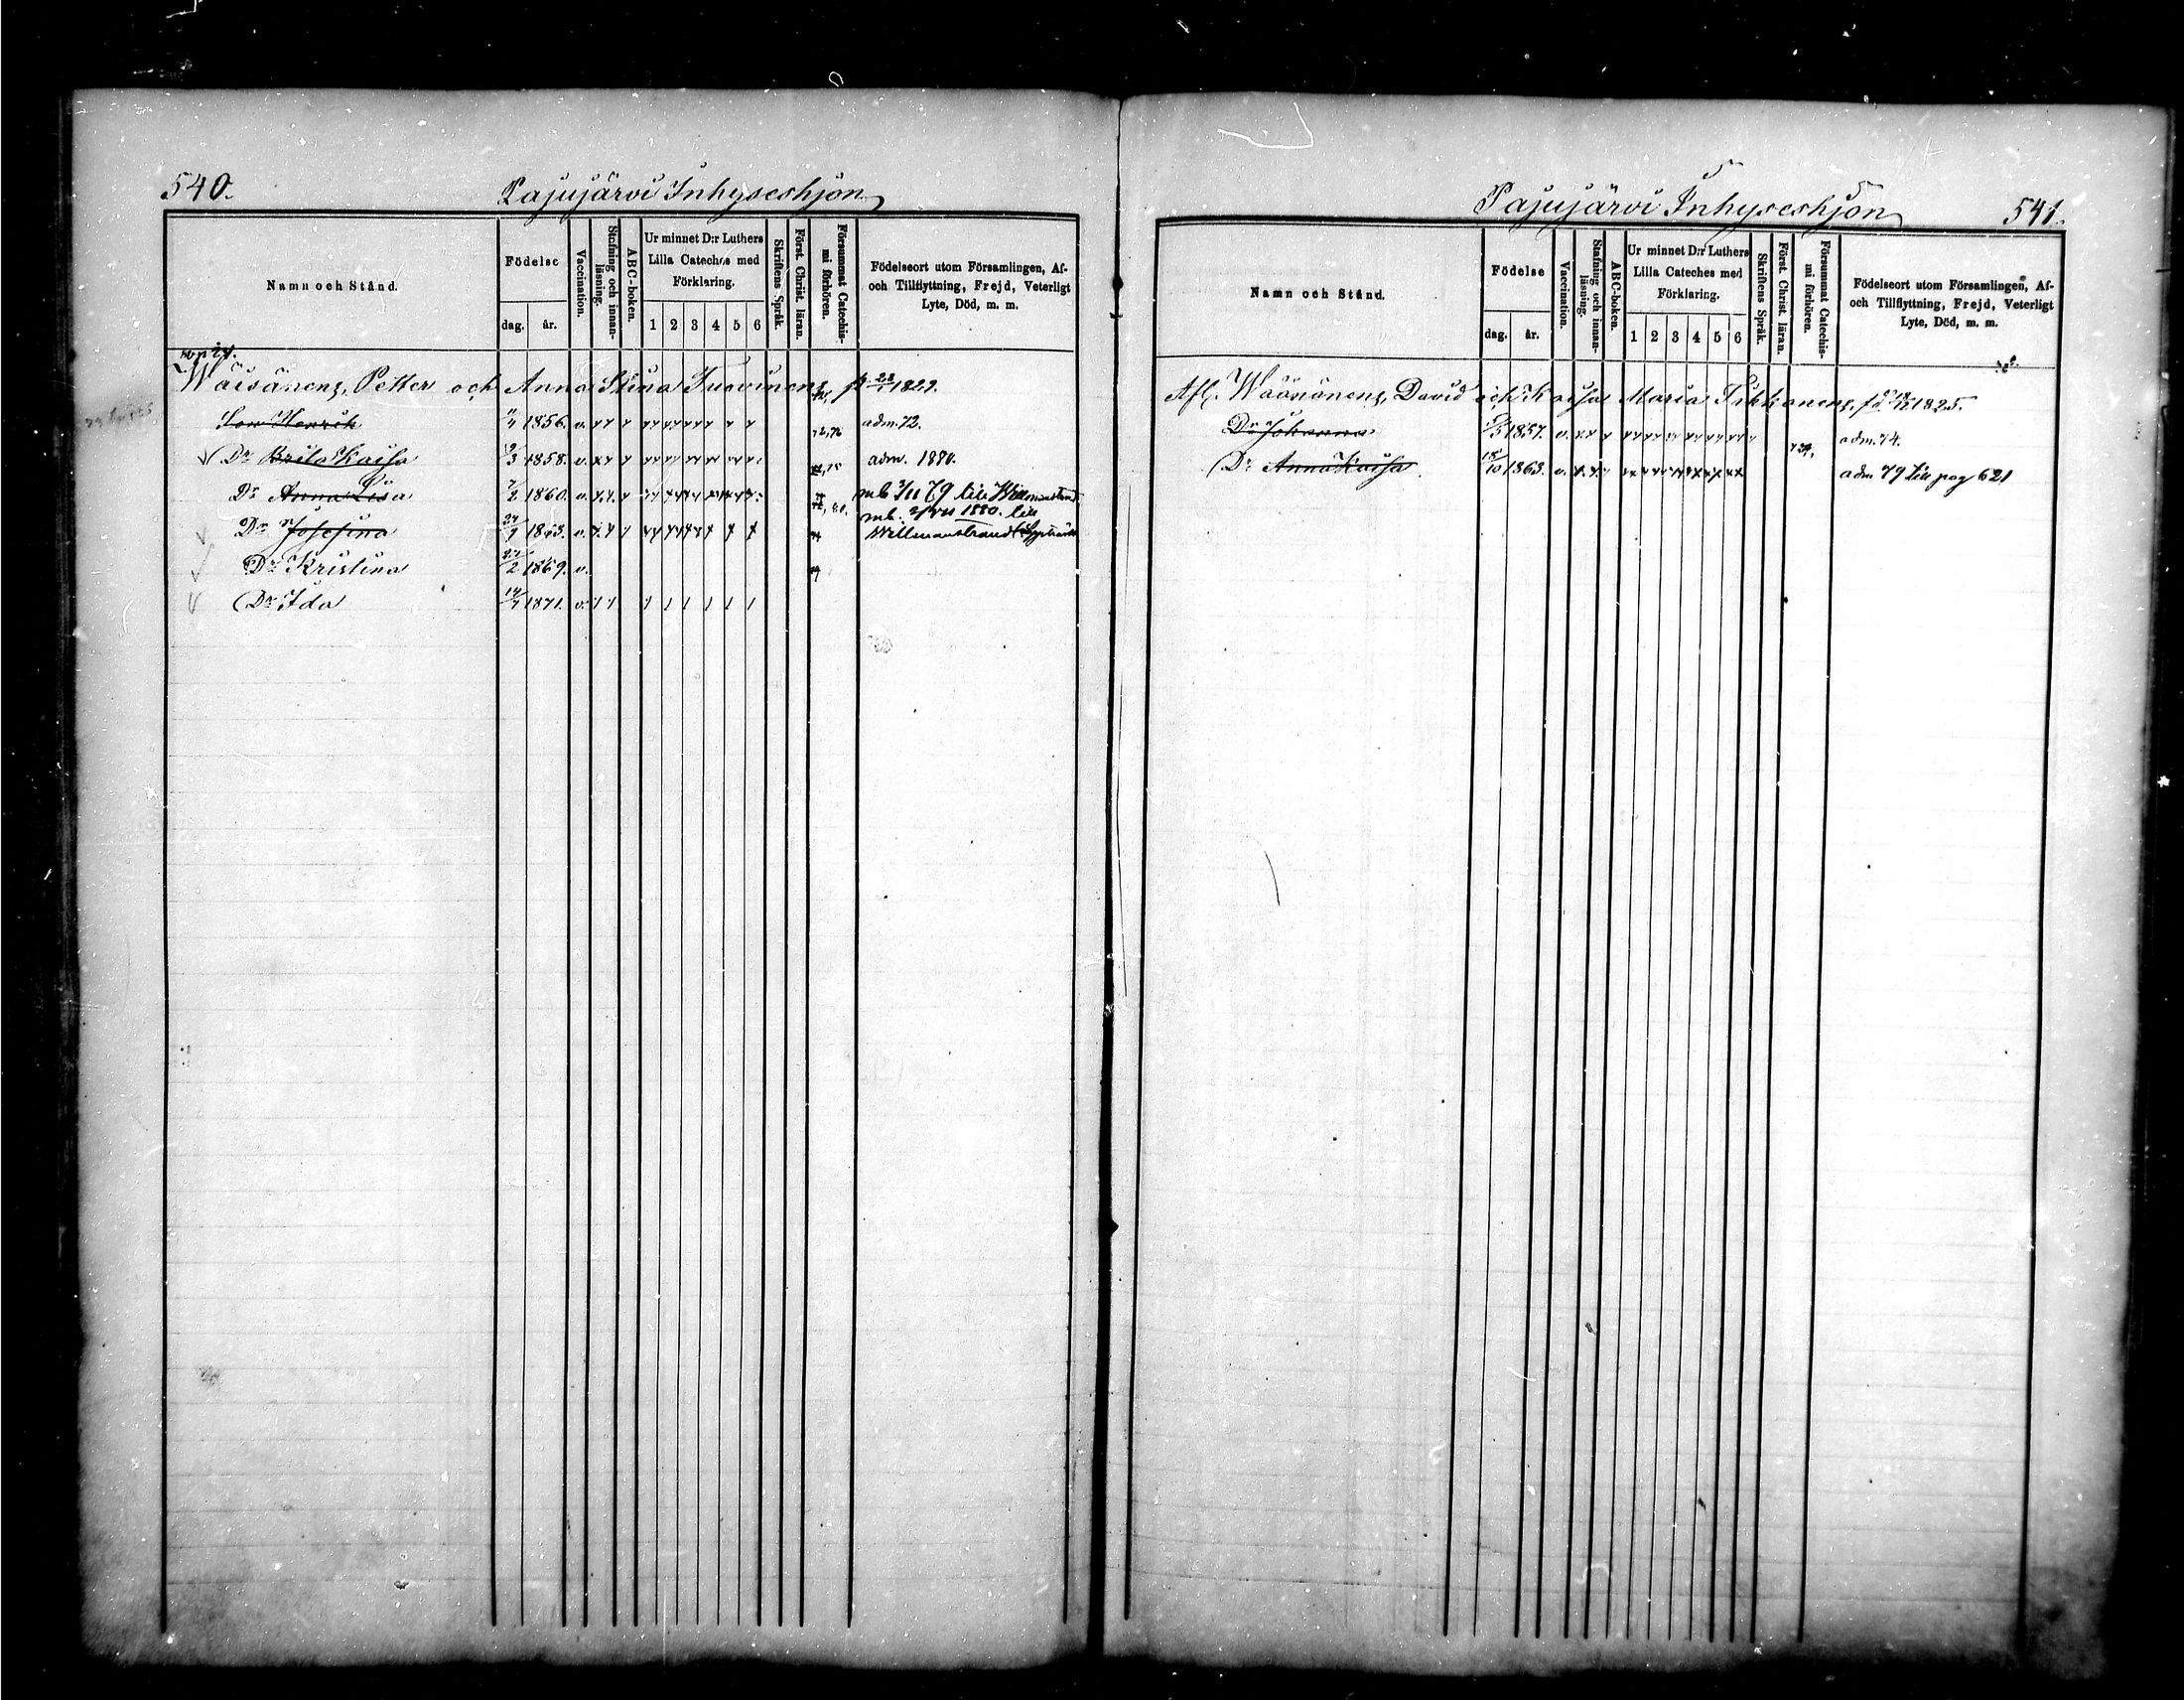 540.
Pajujärvi Inhyseshjon
Namn och Stånd.
Födelse
dag. år.
Vaccination.
Stafning och innanläsning.
ABC-boken.
Ur minnet D:r Luthers Lilla Cateches med Förklaring.
1 2 3 4 5 6
Skriftens Språk.
Först. Christ. läran.
Försummat Catechismi förhören.
Födelseort utom Församlingen, Af- och Tillflyttning, Frejd, Veterligt Lyte, Död, m. m.
Wäisänens, Petter och Anna Stina Tuovinens, 1829.
Son Henrik 1856. v. adm. 72.
Dr Brita Kaisa 9/3 1858. v. adm. 1880.
Dr Anna Lisa 7/2 1860. v. mb 3/11 79 till Willmanstrand
Dr Josefina 1863. v. mb. 1880. till
Willmanstrand
Dr Kristina 1869. v.
Dr Ida 1871. v.
Pajujärvi Inhyseshjon
541.
Namn och Stånd.
Födelse
dag. år.
Vaccination.
Stafning och innanläsning.
ABC-boken.
Ur minnet D:r Luthers Lilla Cateches med Förklaring.
1 2 3 4 5 6
Skriftens Språk.
Först. Christ. läran.
Försummat Catechismi förhören.
Födelseort utom Församlingen, Af- och Tillflyttning, Frejd, Veterligt Lyte, Död, m. m.
Afl. Wäänänens, David och Kaisa Maria Tikkanens, 1825.
Dr Johanna 1857. v. adm. 74.
Dr Anna Kaisa 18/10 1863. v. adm 79 till pag 621